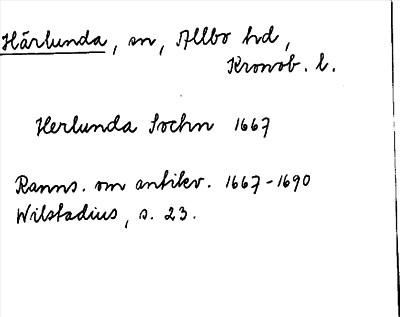 Härlunda, sn, Allbo hd,
Kronob. l.
Herlunda Sochn 1667
Ranns. om antikv. 1667-1690
Wilstadius, s. 23.